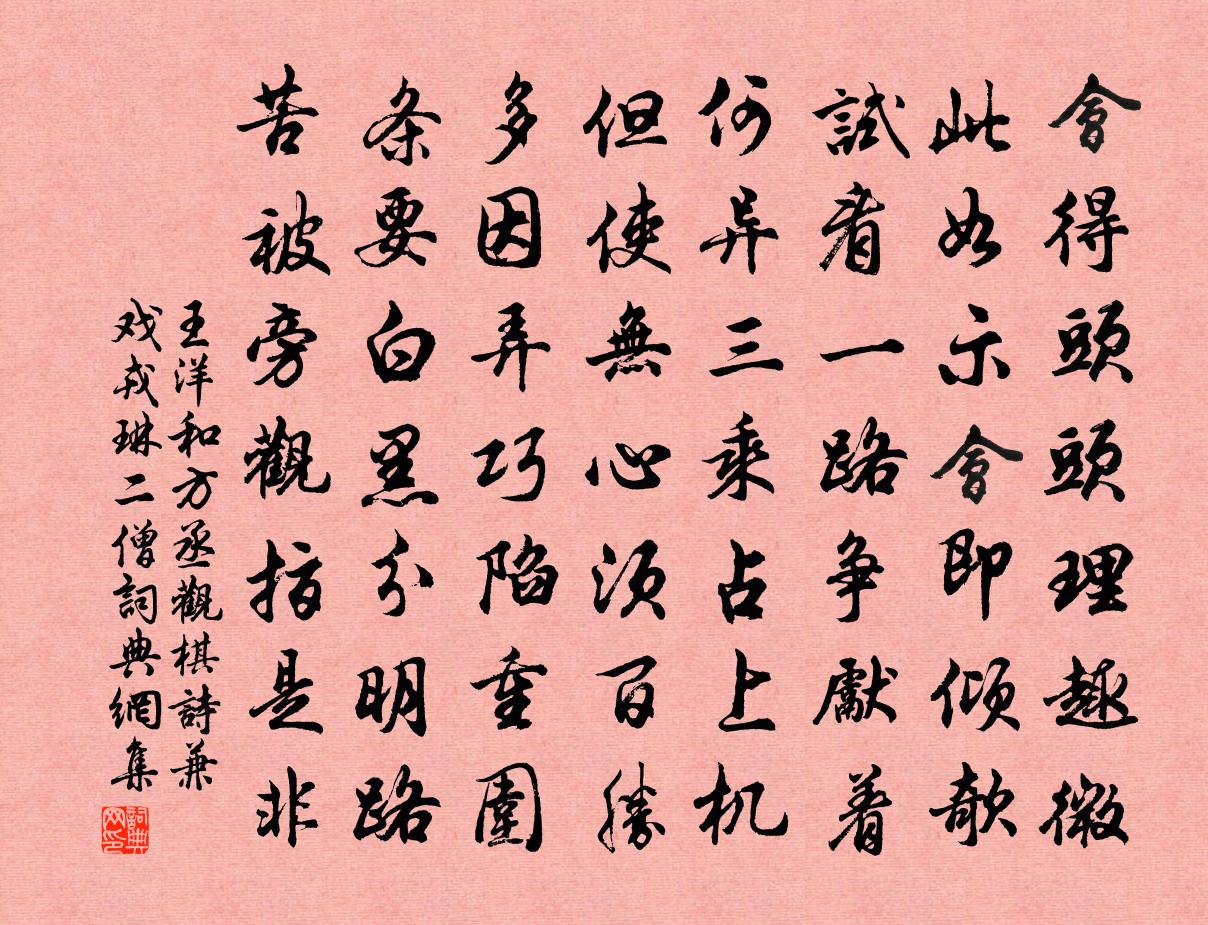 會得頭頭理趣微
此如示會即傾欹
試看一路争獻着
何异三乘占上机
但使無心須百勝
多因弄巧陷重圍
条要白黑分明路
苦被旁觀指是非
王洋和方丞觀棋詩兼
戏戎琳二僧詞典網集
詞典
网印